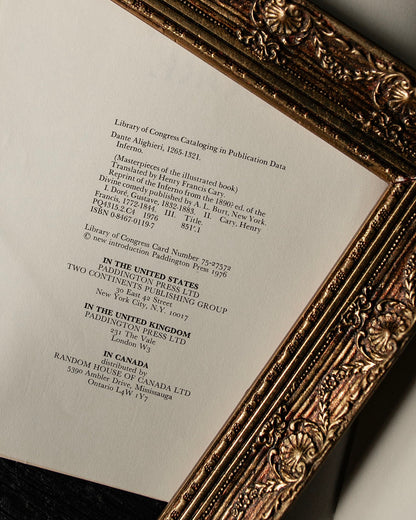 Library of Congress Cataloging in Publication Data
Dante Alighieri, 1265-1321.
Inferno.
(Masterpieces of the illustrated book)
Translated by Henry Francis Cary.
Reprint of the Inferno from the 1890 ed. of the
Divine comedy published by A. L. Burt, New York.
I. Doré, Gustave, 1832-1883. II. Cary, Henry
Francis, 1772-1844. III. Title.
PQ4315.2.C4 1976 851'.1
ISBN 0-8467-0119-7
Library of Congress Card Number 75-27572
© new introduction Paddington Press 1976
IN THE UNITED STATES
PADDINGTON PRESS LTD
TWO CONTINENTS PUBLISHING GROUP
30 East 42 Street
New York City, N.Y. 10017
IN THE UNITED KINGDOM
PADDINGTON PRESS LTD
231 The Vale
London W3
IN CANADA
distributed by
RANDOM HOUSE OF CANADA LTD
5390 Ambler Drive, Mississauga
Ontario L4W 1Y7